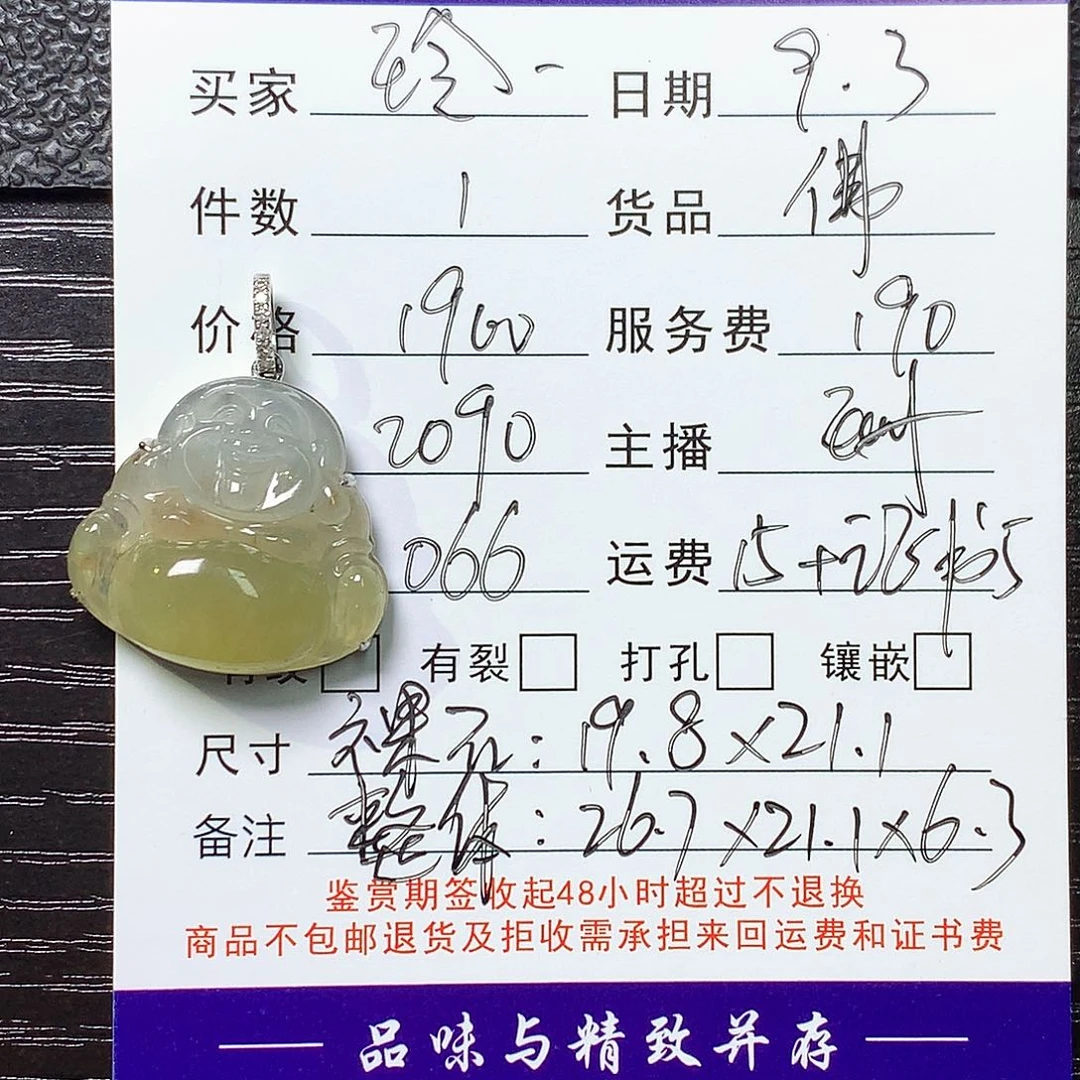 买家 玲一 日期 9.3
件数 1 货品 佛
价格 1900 服务费 190
2090 主播
066 运费 15+证书5
有纹 有裂 打孔 镶嵌
尺寸 裸石:19.8×21.1
备注 整体:26.7×21.1×6.3
鉴赏期签收起48小时超过不退换
商品不包邮退货及拒收需承担来回运费和证书费
品味与精致并存